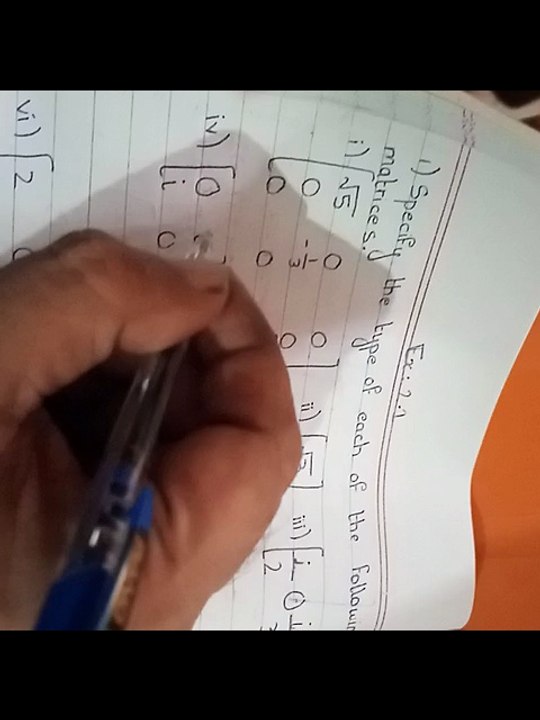 Ex: 2.1
1) Specify the type of each of the
matrices.
i) [√5 0 0
0 -1/3 0
0 0
ii) [√3] iii) [1/2 0
iv) [0
i 0
vi) [2